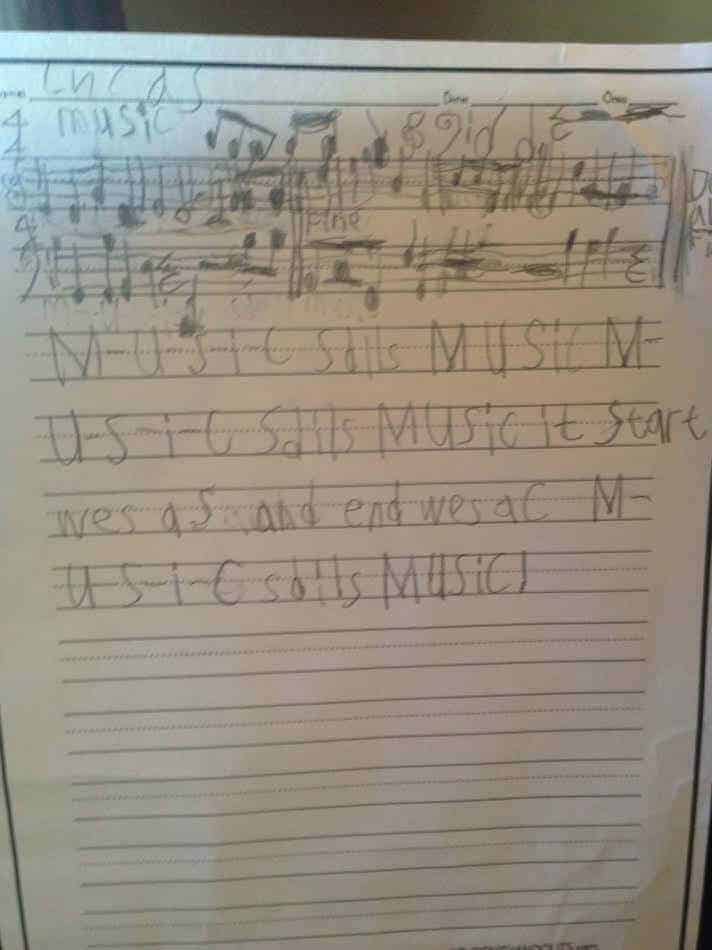 Lucas
Date
music
4
4
Fine
M-U-S-i-C Sdlls MUSic M-
U-S-i-C Sdlls MUSic it Start
wes a S and end wes a C M-
U-S-i-C sdlls MUSiC!